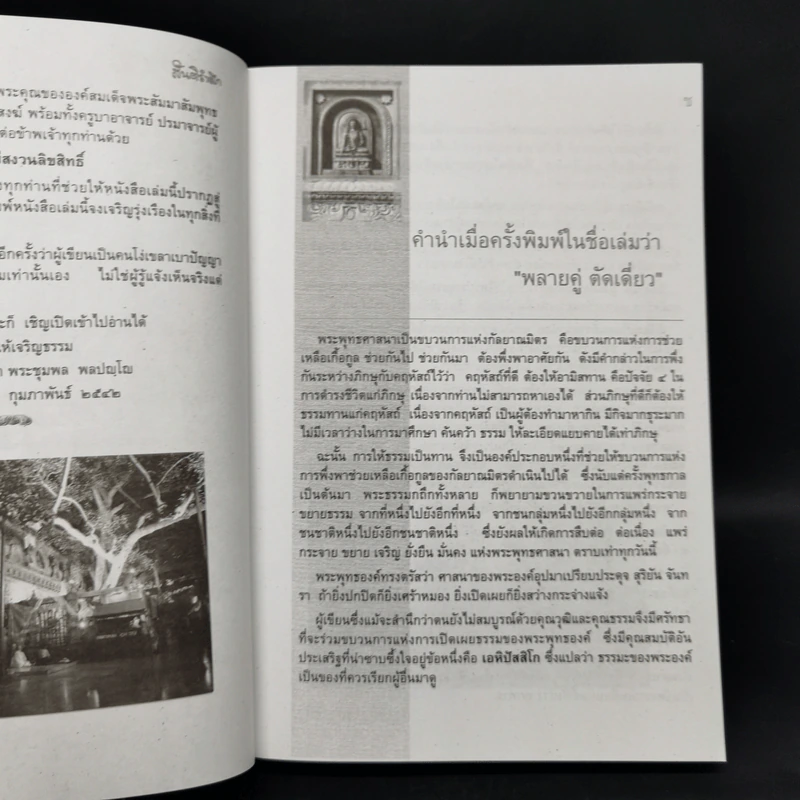 สันติรำลึก
พระคุณขององค์สมเด็จพระสัมมาสัมพุทธ
สงฆ์ พร้อมทั้งครูบาอาจารย์ ปรมาจารย์ผู้
ต่อข้าพเจ้าทุกท่านด้วย
สงวนลิขสิทธิ์
ทุกท่านที่ช่วยให้หนังสือเล่มนี้ปรากฏสู่
พ์หนังสือเล่มนี้จงเจริญรุ่งเรืองในทุกสิ่งที่
อีกครั้งว่าผู้เขียนเป็นคนโง่เขลาเบาปัญญา
มเท่านั้นเอง ไม่ใช่ผู้รู้แจ้งเห็นจริงแต่
ะก็ เชิญเปิดเข้าไปอ่านได้
ห้เจริญธรรม
พระชุมพล พลปญฺโญ
กุมภาพันธ์ ๒๕๔๒
ช
คำนำเมื่อครั้งพิมพ์ในชื่อเล่มว่า
"พลายคู่ ตัดเดี่ยว"
พระพุทธศาสนาเป็นขบวนการแห่งกัลยาณมิตร คือขบวนการแห่งการช่วย
เหลือเกื้อกูล ช่วยกันไป ช่วยกันมา ต้องพึ่งพาอาศัยกัน ดังมีคำกล่าวในการพึ่ง
กันระหว่างภิกษุกับคฤหัสถ์ไว้ว่า คฤหัสถ์ที่ดี ต้องให้อามิสทาน คือปัจจัย ๔ ใน
การดำรงชีวิตแก่ภิกษุ เนื่องจากท่านไม่สามารถหาเองได้ ส่วนภิกษุที่ดีก็ต้องให้
ธรรมทานแก่คฤหัสถ์ เนื่องจากคฤหัสถ์ เป็นผู้ต้องทำมาหากิน มีกิจมากธุระมาก
ไม่มีเวลาว่างในการมาศึกษา ค้นคว้า ธรรม ให้ละเอียดแยบคายได้เท่าภิกษุ
ฉะนั้น การให้ธรรมเป็นทาน จึงเป็นองค์ประกอบหนึ่งที่ช่วยให้ขบวนการแห่ง
การพึ่งพาช่วยเหลือเกื้อกูลของกัลยาณมิตรดำเนินไปได้ ซึ่งนับแต่ครั้งพุทธกาล
เป็นต้นมา พระธรรมกถึกทั้งหลาย ก็พยายามขวนขวายในการแพร่กระจาย
ขยายธรรม จากที่หนึ่งไปยังอีกที่หนึ่ง จากชนกลุ่มหนึ่งไปยังอีกกลุ่มหนึ่ง จาก
ชนชาติหนึ่งไปยังอีกชนชาติหนึ่ง ซึ่งยังผลให้เกิดการสืบต่อ ต่อเนื่อง แพร่
กระจาย ขยาย เจริญ ยั่งยืน มั่นคง แห่งพระพุทธศาสนา ตราบเท่าทุกวันนี้
พระพุทธองค์ทรงตรัสว่า ศาสนาของพระองค์อุปมาเปรียบประดุจ สุริยัน จันท
รา ถ้ายิ่งปกปิดก็ยิ่งเศร้าหมอง ยิ่งเปิดเผยก็ยิ่งสว่างกระจ่างแจ้ง
ผู้เขียนซึ่งแม้จะสำนึกว่าตนยังไม่สมบูรณ์ด้วยคุณวุฒิและคุณธรรมจึงมีศรัทธา
ที่จะร่วมขบวนการแห่งการเปิดเผยธรรมของพระพุทธองค์ ซึ่งมีคุณสมบัติอัน
ประเสริฐที่น่าซาบซึ้งใจอยู่ข้อหนึ่งคือ เอหิปัสสิโก ซึ่งแปลว่า ธรรมะของพระองค์
เป็นของที่ควรเรียกผู้อื่นมาดู